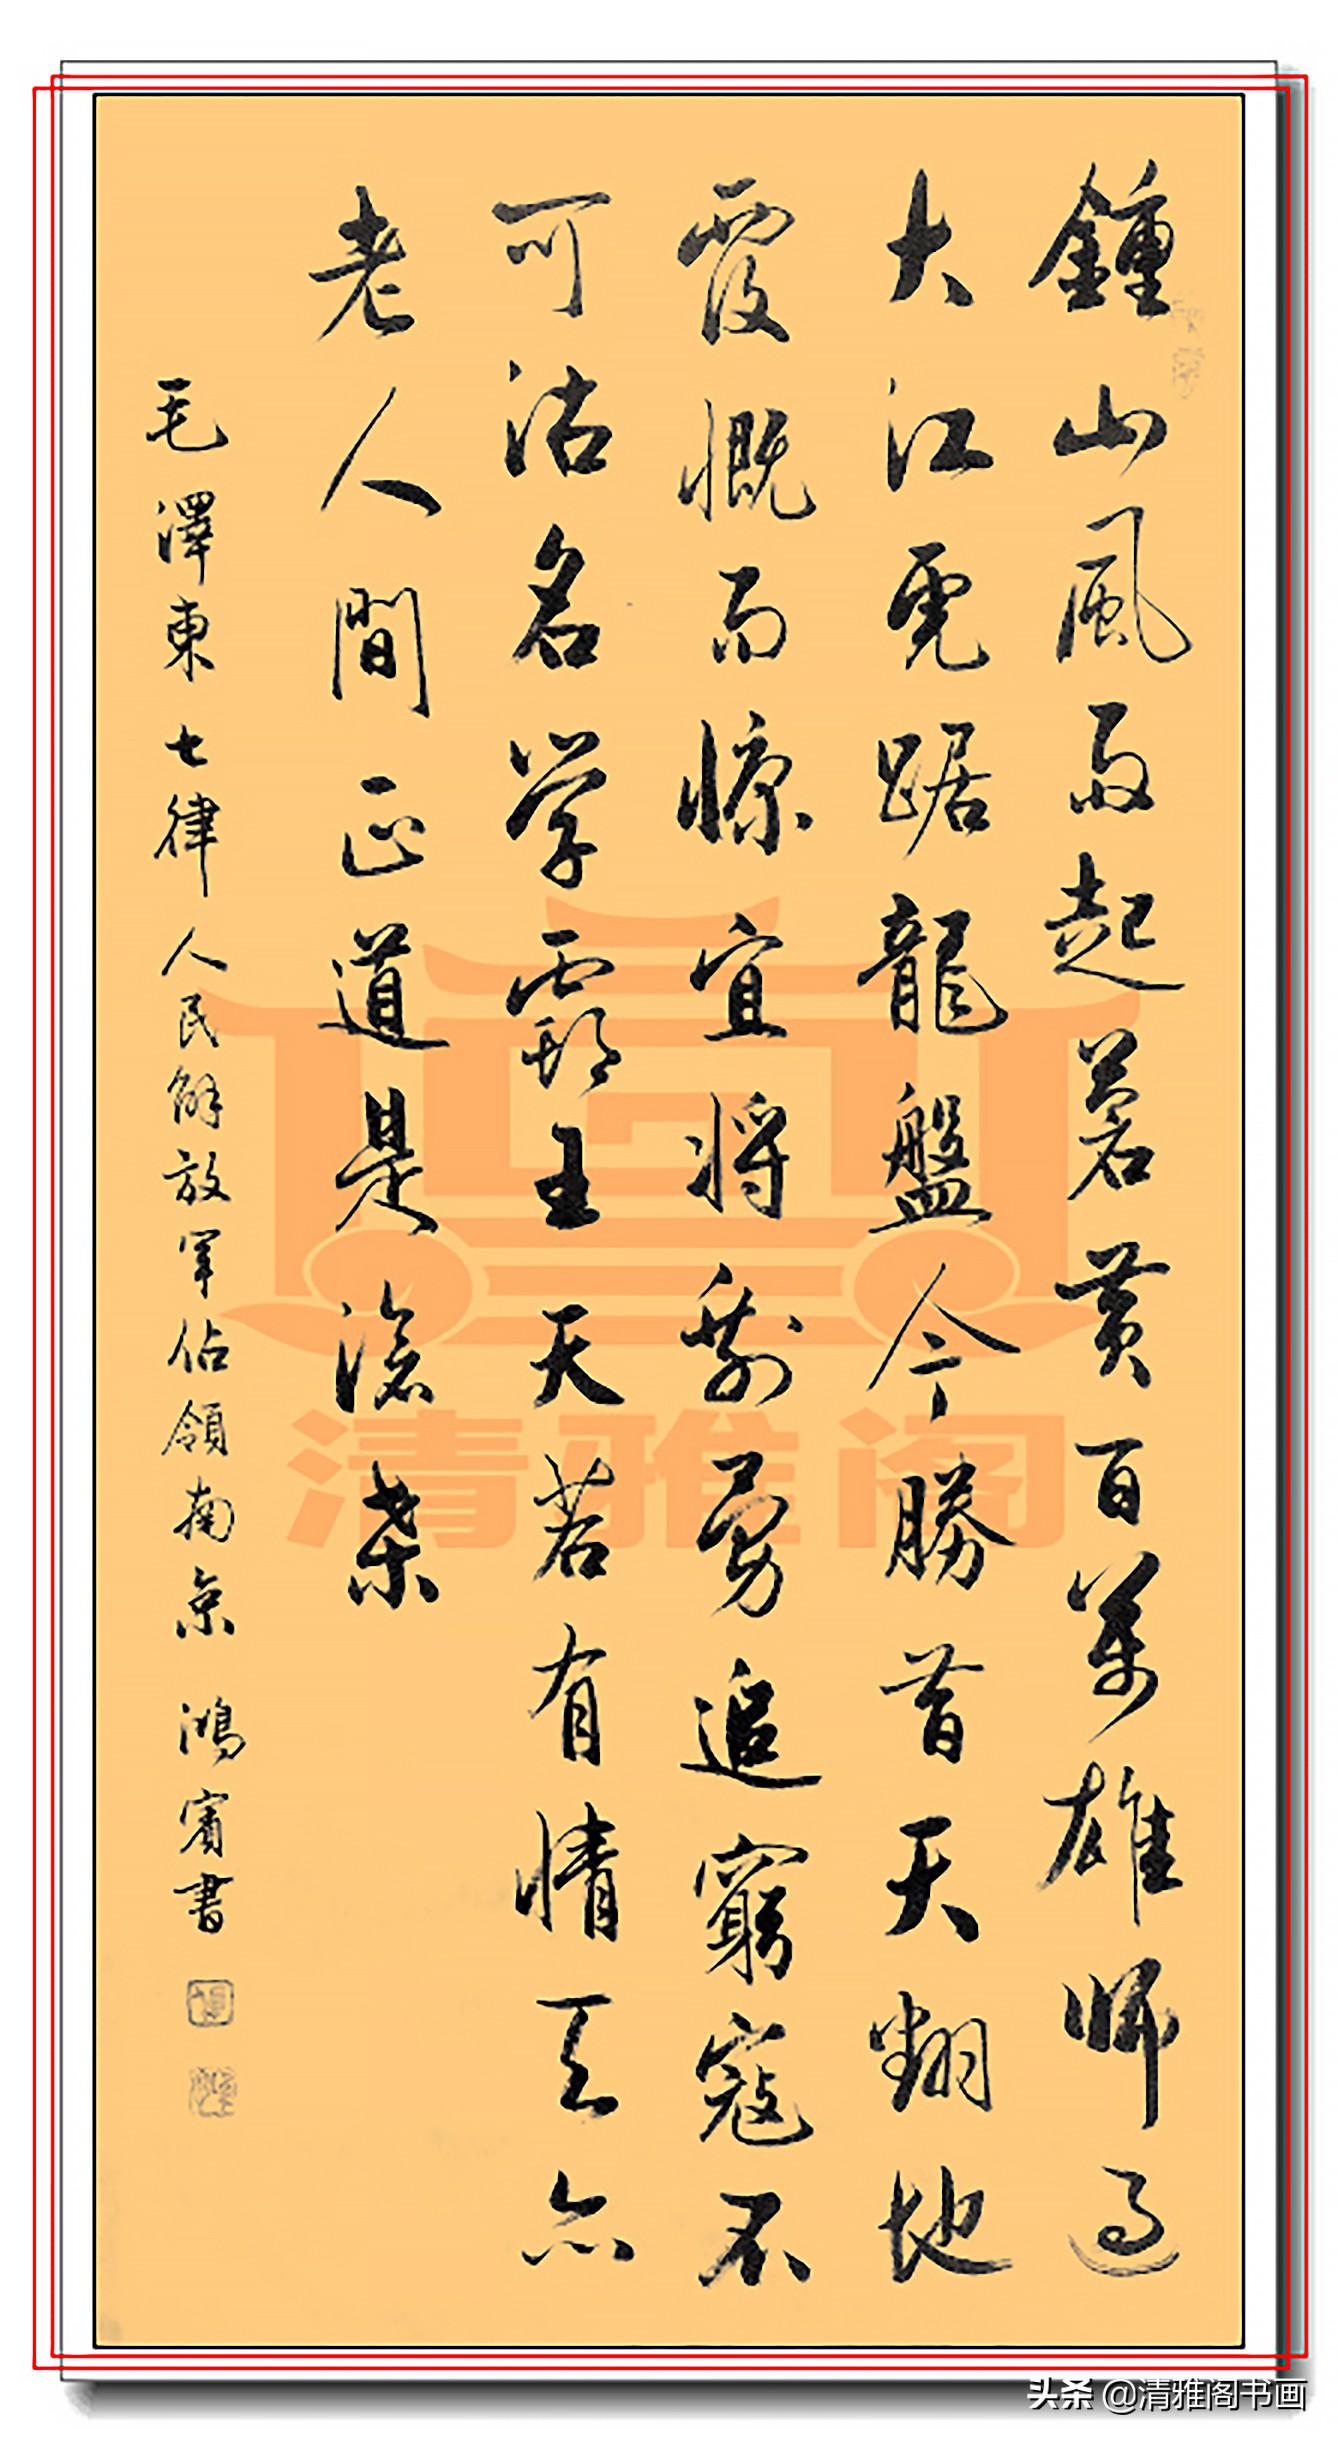 鍾山風雨起蒼黄百萬雄師過
大江虎踞龍盤今勝昔天翻地
覆慨而慷宜将剩勇追窮寇不
可沽名学霸主天若有情天亦
老人間正道是滄桑
毛澤東七律人民解放軍佔領南京 鴻賓書
清雅阁
头条 @清雅阁书画